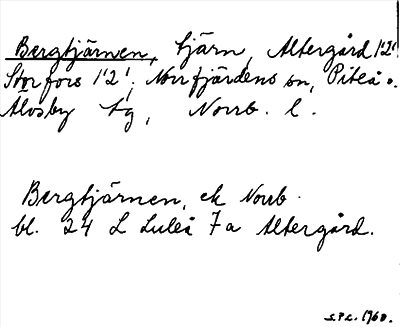 Bergtjärnen, tjärn, Altergård 1'2'
Storfors 1'2', Norrfjärdens sn, Piteå o.
Älvsby tg, Norrb. l.
Bergtjärnen, ek Norrb.
bl. 24 L Luleå 7a Altergård.
S.P.L. 1960.